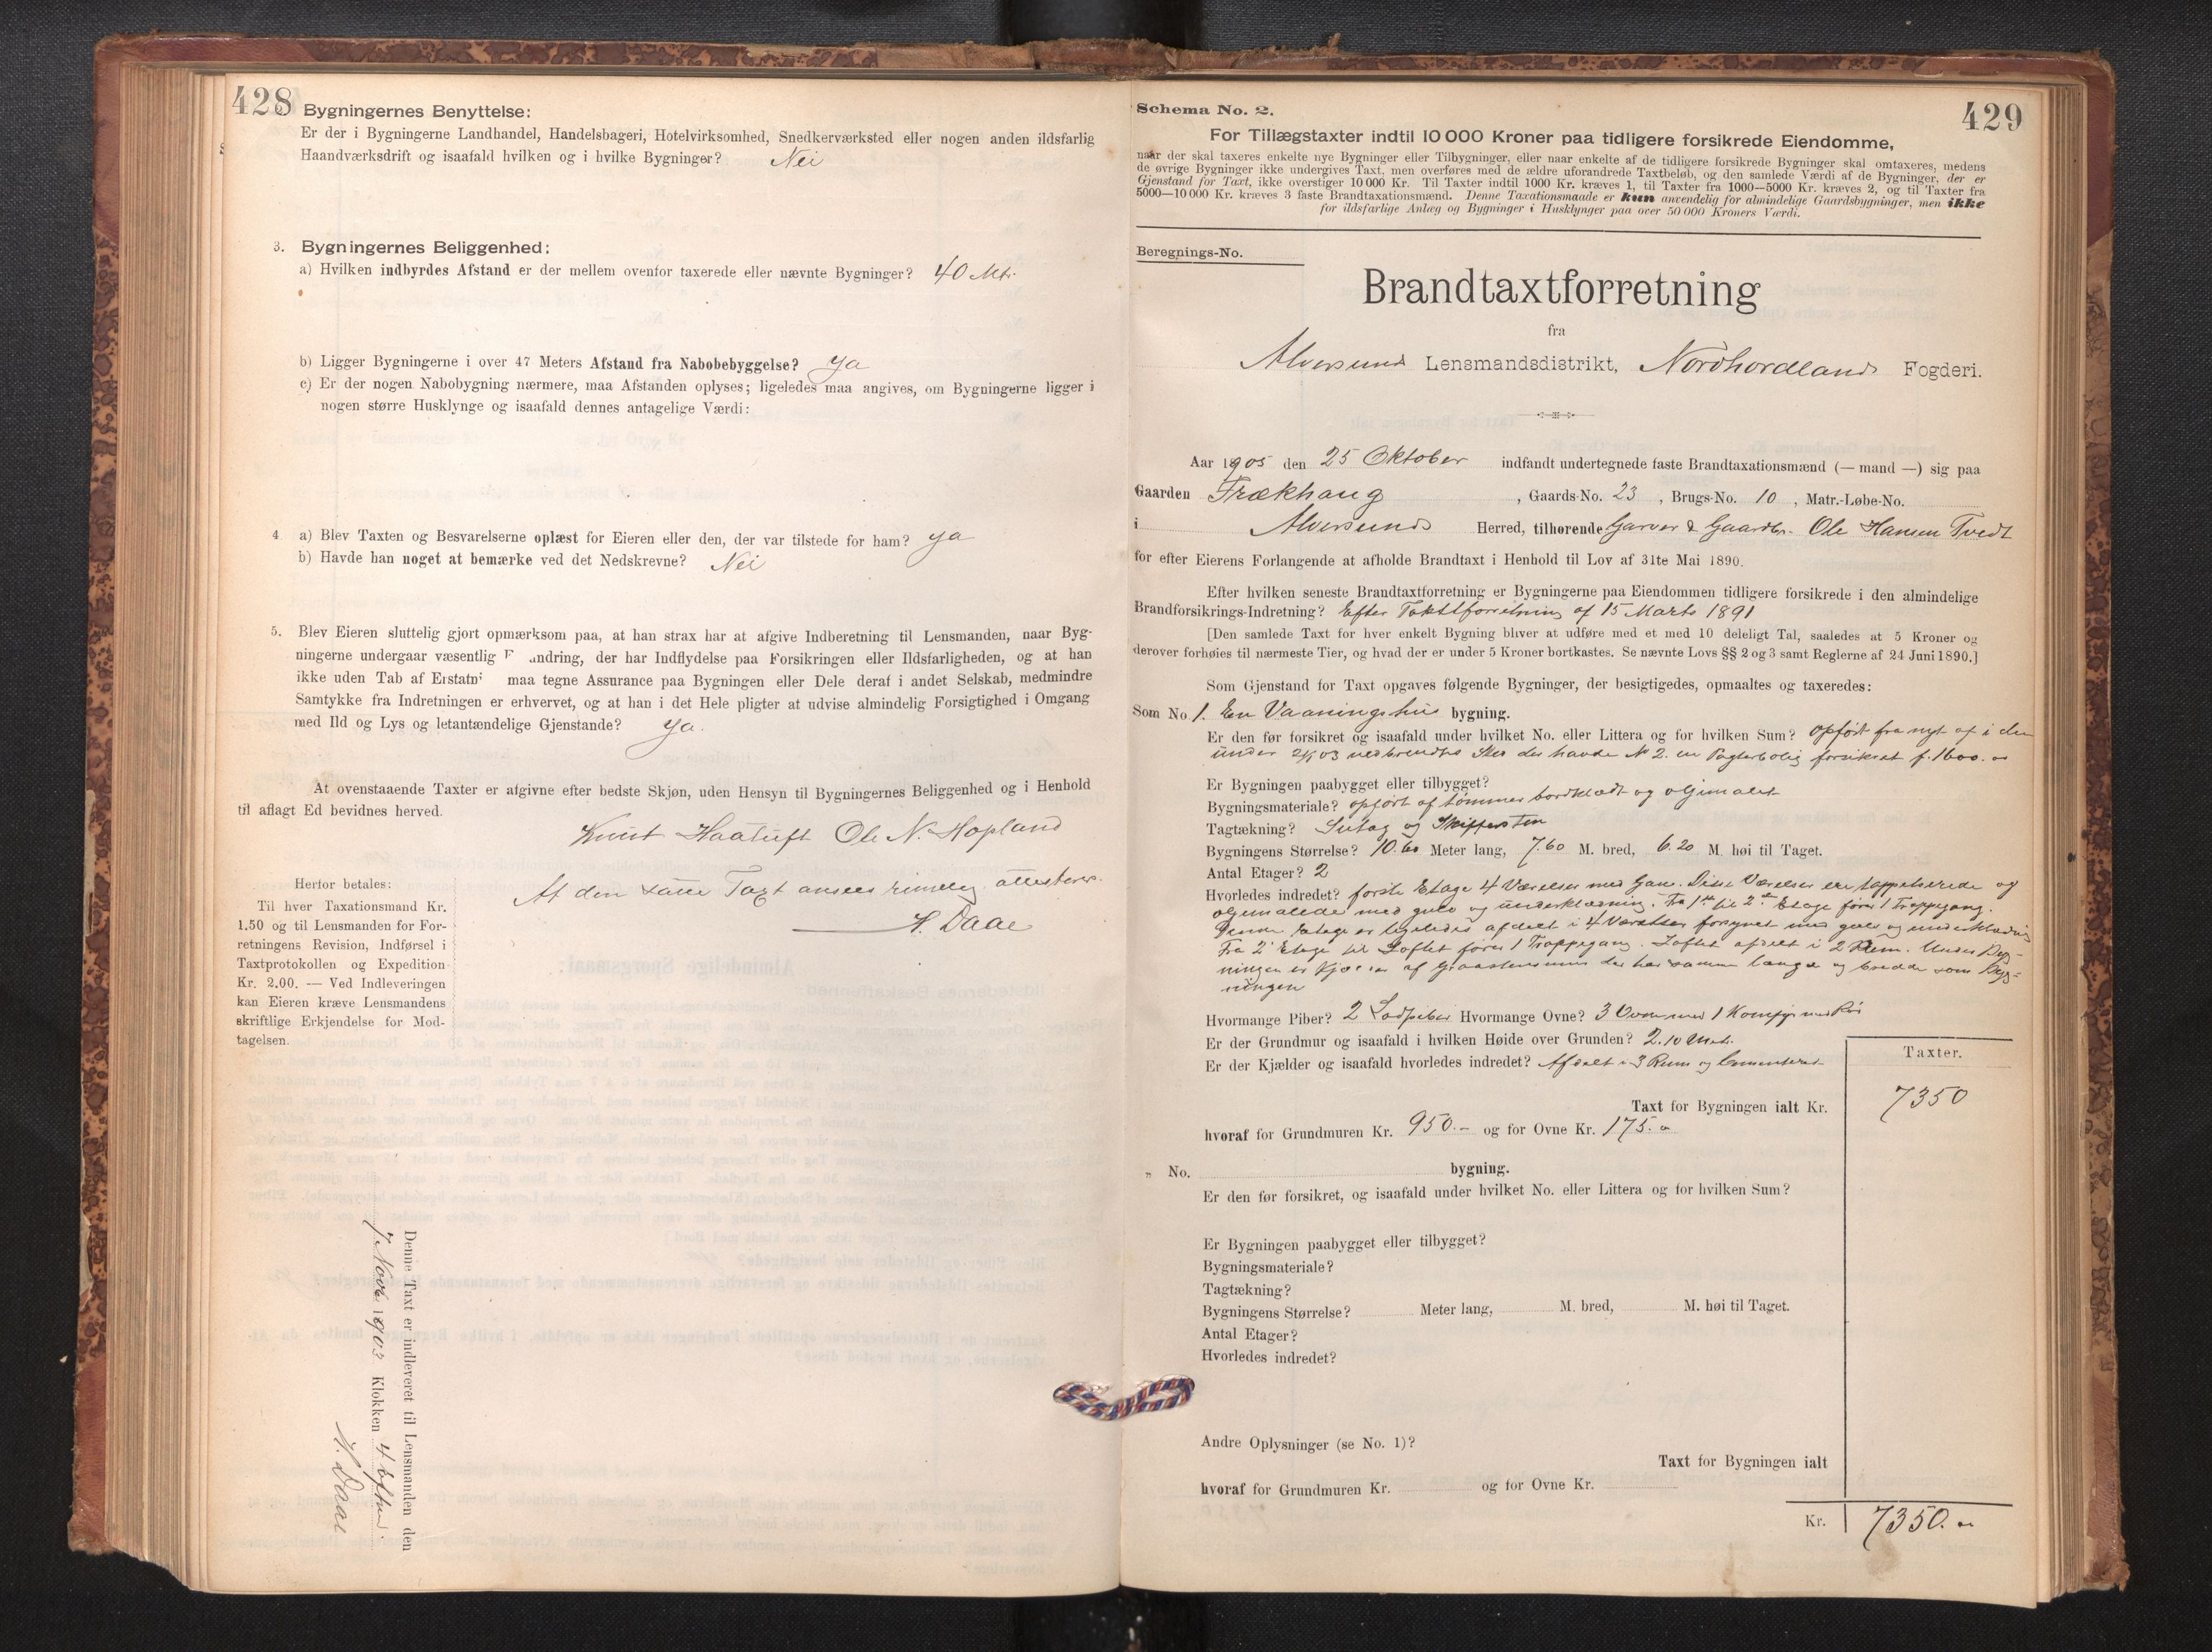 428
Bygningernes Benyttelse:
Er der i Bygningerne Landhandel, Handelsbageri, Hotelvirksomhed, Snedkerværksted eller nogen anden ildsfarlig
Haandværksdrift og isaafald hvilken og i hvilke Bygninger? Nei
3. Bygningernes Beliggenhed:
a) Hvilken indbyrdes Afstand er der mellem ovenfor taxerede eller nævnte Bygninger? 40 Mtr.
b) Ligger Bygningerne i over 47 Meters Afstand fra Nabobebyggelse? ya
c) Er der nogen Nabobygning nærmere, maa Afstanden oplyses; ligeledes maa angives, om Bygningerne ligger i
nogen større Husklynge og isaafald dennes antagelige Værdi:
4 a) Blev Taxten og Besvarelserne oplæst for Eieren eller den, der var tilstede for ham? ya
b) Havde han noget at bemærke ved det Nedskrevne? Nei
5. Blev Eieren sluttelig gjort opmærksom paa, at han strax har at afgive Indberetning til Lensmanden, naar Byg-
ningerne undergaar væsentlig F andring, der har Indflydelse paa Forsikringen eller Ildsfarligheden, og at han
ikke uden Tab af Erstatn maa tegne Assurance paa Bygningen eller Dele deraf i andet Selskab, medmindre
Samtykke fra Indretningen er erhvervet, og at han i det Hele pligter at udvise almindelig Forsigtighed i Omgang
med Ild og Lys og letantændelige Gjenstande? ya.
At ovenstaaende Taxter er afgivne efter bedste Skjøn, uden Hensyn til Bygningernes Beliggenhed og i Henhold
til aflagt Ed bevidnes herved.
Knut Haatuft Ole N. Hopland
At den satte Taxt ansees rimelig attesteres.
H. Daae
Herfor betales:
Til hver Taxationsmand Kr.
1.50 og til Lensmanden for For-
retningens Revision, Indførsel i
Taxtprotokollen og Expedition
Kr. 2.00. — Ved Indleveringen
kan Eieren kræve Lensmandens
skriftlige Erkjendelse for Mod-
tagelsen.
Denne Taxt er indleveret til Lensmanden den
7 Novb. 1903 Klokken 4 Eftm.
H. Daae
Schema No. 2.
429
For Tillægstaxter indtil 10 000 Kroner paa tidligere forsikrede Eiendomme,
naar der skal taxeres enkelte nye Bygninger eller Tilbygninger, eller naar enkelte af de tidligere forsikrede Bygninger skal omtaxeres, medens
de øvrige Bygninger ikke undergives Taxt, men overføres med de ældre uforandrede Taxtbeløb, og den samlede Værdi af de Bygninger, der er
Gjenstand for Taxt, ikke overstiger 10 000 Kr. Til Taxter indtil 1000 Kr. kræves 1, til Taxter fra 1000—5000 Kr. kræves 2, og til Taxter fra
5000—10 000 Kr. kræves 3 faste Brandtaxationsmænd. Denne Taxationsmaade er kun anvendelig for almindelige Gaardsbygninger, men ikke
for ildsfarlige Anlæg og Bygninger i Husklynger paa over 50 000 Kroners Værdi.
Beregnings-No.
Brandtaxtforretning
fra
Alversund Lensmandsdistrikt, Nordhordlands Fogderi.
Aar 1905 den 25 Oktober indfandt undertegnede faste Brandtaxationsmænd (— mand —) sig paa
Gaarden Frækhaug , Gaards-No. 23 , Brugs-No. 10 , Matr.-Løbe-No.
i Alversunds Herred, tilhørende Garver & Gaardbr. Ole Hansen Tvedt
for efter Eierens Forlangende at afholde Brandtaxt i Henhold til Lov af 31te Mai 1890.
Efter hvilken seneste Brandtaxtforretning er Bygningerne paa Eiendommen tidligere forsikrede i den almindelige
Brandforsikrings-Indretning? Efter Takstforretning af 15 Marts 1891
[Den samlede Taxt for hver enkelt Bygning bliver at udføre med et med 10 deleligt Tal, saaledes at 5 Kroner og
derover forhøies til nærmeste Tier, og hvad der er under 5 Kroner bortkastes. Se nævnte Lovs §§ 2 og 3 samt Reglerne af 24 Juni 1890.]
Som Gjenstand for Taxt opgaves følgende Bygninger, der besigtigedes, opmaaltes og taxeredes:
Som No 1. En Vaaningshus bygning.
Er den før forsikret og isaafald under hvilket No. eller Littera og for hvilken Sum? opført fra nyt af i den
under 03 nedbrendte der havde No 2. en forsikret f. 1600.
Er Bygningen paabygget eller tilbygget?
Bygningsmateriale? opført af tømmer bordklædt og oljemalet
Tagtækning? Sutag og Skifersten
Bygningens Størrelse? 10.60 Meter lang, 7.60 M. bred, 6.20 M. høi til Taget.
Antal Etager? 2
Hvorledes indredet? første Etage 4 Værelser med Gang. Disse Værelser ere tappetserede og
oljemalede med gulv og underklædning. Fra 1ste til 2den Etage fører 1 Trappegang.
Denne Etage er ligeledes afdelt i 4 Værelser forsynet med gulv og underklædning
Fra 2 Etage til Loftet fører 1 Trappegang. Loftet afdelt i 2 Rum. Under Byg-
ningen er Kjælder af Graastensmur der har samme længde og bredde som Byg-
ningen
Hvormange Piber? 2 Hvormange Ovne? 3 Ovne med 1 Komfyr med Rør
Er der Grundmur og isaafald i hvilken Høide over Grunden? 2.10 Met.
Er der Kjælder og isaafald hvorledes indredet? Afdelt i 3 Rum og Cementeret
Taxter.
Taxt for Bygningen ialt Kr. 7350
hvoraf for Grundmuren Kr. 950.- og for Ovne Kr. 175.-
„ No. bygning.
Er den før forsikret, og isaafald under hvilket No. eller Littera og for hvilken Sum?
Er Bygningen paabygget eller tilbygget?
Bygningsmateriale?
Tagtækning?
Bygningens Størrelse? Meter lang, M. bred, M. høi til Taget.
Antal Etager?
Hvorledes indredet?
Andre Oplysninger (se No. 1)?
Taxt for Bygningen ialt
hvoraf for Grundmuren Kr. og for Ovne Kr.
Kr. 7350.-